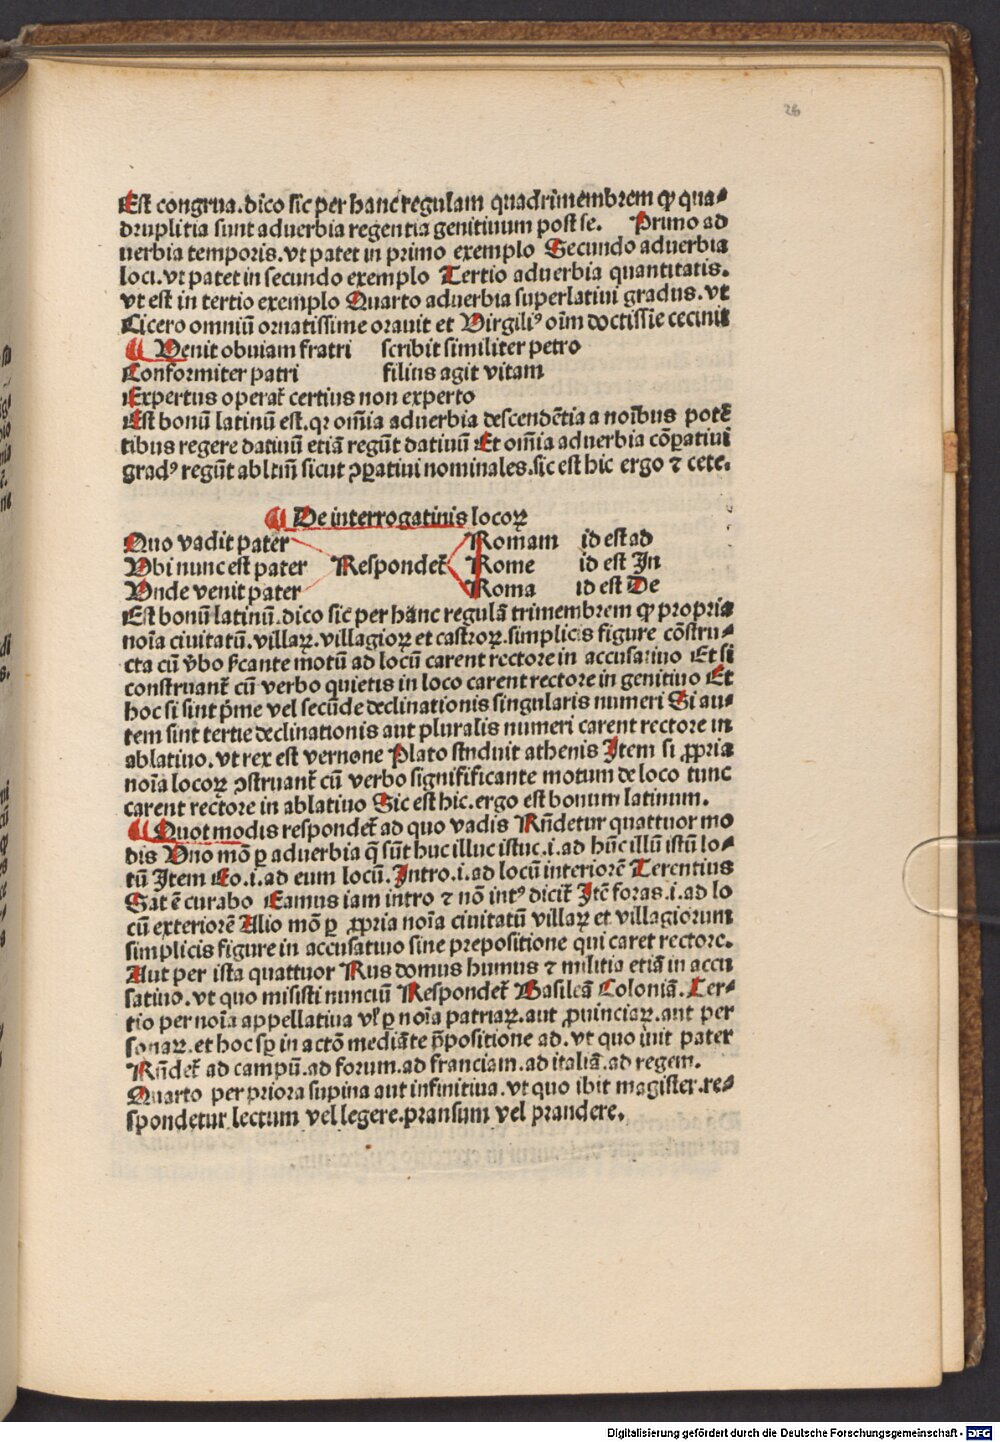 26
Est congrua.dico sic per hanc regulam quadrimembrem ꝙ qua⸗
druplitia sunt aduerbia regentia genitiuum post se. Primo ad
uerbia temporis.vt patet in primo exemplo Secundo aduerbia
loci.vt patet in secundo exemplo Tertio aduerbia quantitatis.
vt est in tertio exemplo Quarto aduerbia superlatiui gradus.vt
Cicero omniū ornatissime orauit et Virgiliꝰ oīm doctissie cecinit
¶ Venit obuiam fratri scribit similiter petro
Conformiter patri filius agit vitam
Expertus operat᷑ certius non experto
Est bonū latinū est.qꝛ om̄ia aduerbia descendētia a noībus potē
tibus regere datiuū etiā regūt datiuū Et om̄ia aduerbia cōꝑatiui
gradꝰ regūt abltīm sicut ꝯꝑatiui nominales.sic est hic ergo ⁊ cete.
¶ De interrogatiuis locoꝝ
Quo vadit pater Romam id est ad
Vbi nunc est pater Respondet᷑ Rome id est In
Vnde venit pater Roma id est De
Est bonū latinū.dico sic per hanc regulā trimembrem ꝙ propria
noīa ciuitatū.villaꝝ.villagioꝝ et castroꝝ.simplicis figure cōstru⸗
cta cū v̄bo s̄cante motū ad locū carent rectore in accusatiuo Et si
construant᷑ cū verbo quietis in loco carent rectore in genitiuo Et
hoc si sint p̄me vel secūde declinationis singularis numeri Si au⸗
tem sint tertie declinationis aut pluralis numeri carent rectore in
ablatiuo.vt rex est vernone Plato studuit athenis Item si ꝓpria
noīa locoꝝ ꝯstruant᷑ cū verbo signifificante motum de loco tunc
carent rectore in ablatiuo Sic est hic.ergo est bonum latinum.
¶ Quot modis respondet᷑ ad quo vadis Rn̄detur quattuor mo
dis Vno mō ꝑ aduerbia q̄ sūt huc illuc istuc.i.ad hūc illū istū lo⸗
tū Item Eo.i.ad eum locū.Intro.i.ad locū interiorē Terentius
Sat ē curabo Eamus iam intro ⁊ nō intꝰ dicit᷑ Itē foras.i.ad lo
cū exteriorē Alio mō ꝑ ꝓpria noīa ciuitatū villaꝝ et villagiorum
simplicis figure in accusatiuo sine prepositione qui caret rectore.
Aut per ista quattuor Rus domus humus ⁊ militia etiā in accu
satiuo.vt quo misisti nunciū Respondet᷑ Basileā Coloniā.Ter⸗
tio per noīa appellatiua vl̓ ꝑ noīa patriaꝝ.aut ꝓuinciaꝝ.aut per
sonaꝝ.et hoc sꝑ in actō mediāte p̄positione ad.vt quo iuit pater
Rn̄det᷑ ad campū.ad forum.ad franciam.ad italiā.ad regem.
Quarto per priora supina aut infinitiua.vt quo ibit magister.re⸗
spondetur lectum vel legere.pransum vel prandere.
Digitalisierung gefördert durch die Deutsche Forschungsgemeinschaft - DFG